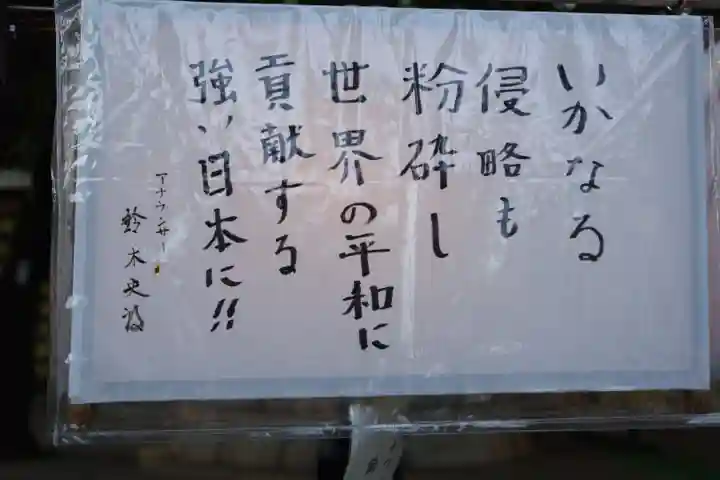 いかなる
侵略も
粉砕し
世界の平和に
貢献する
強い日本に!!
アナウンサー
鈴木史朗